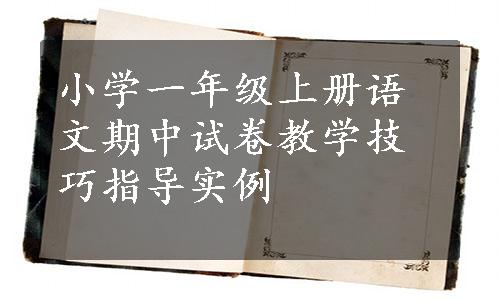 小学一年级上册语
文期中试卷教学技
巧指导实例